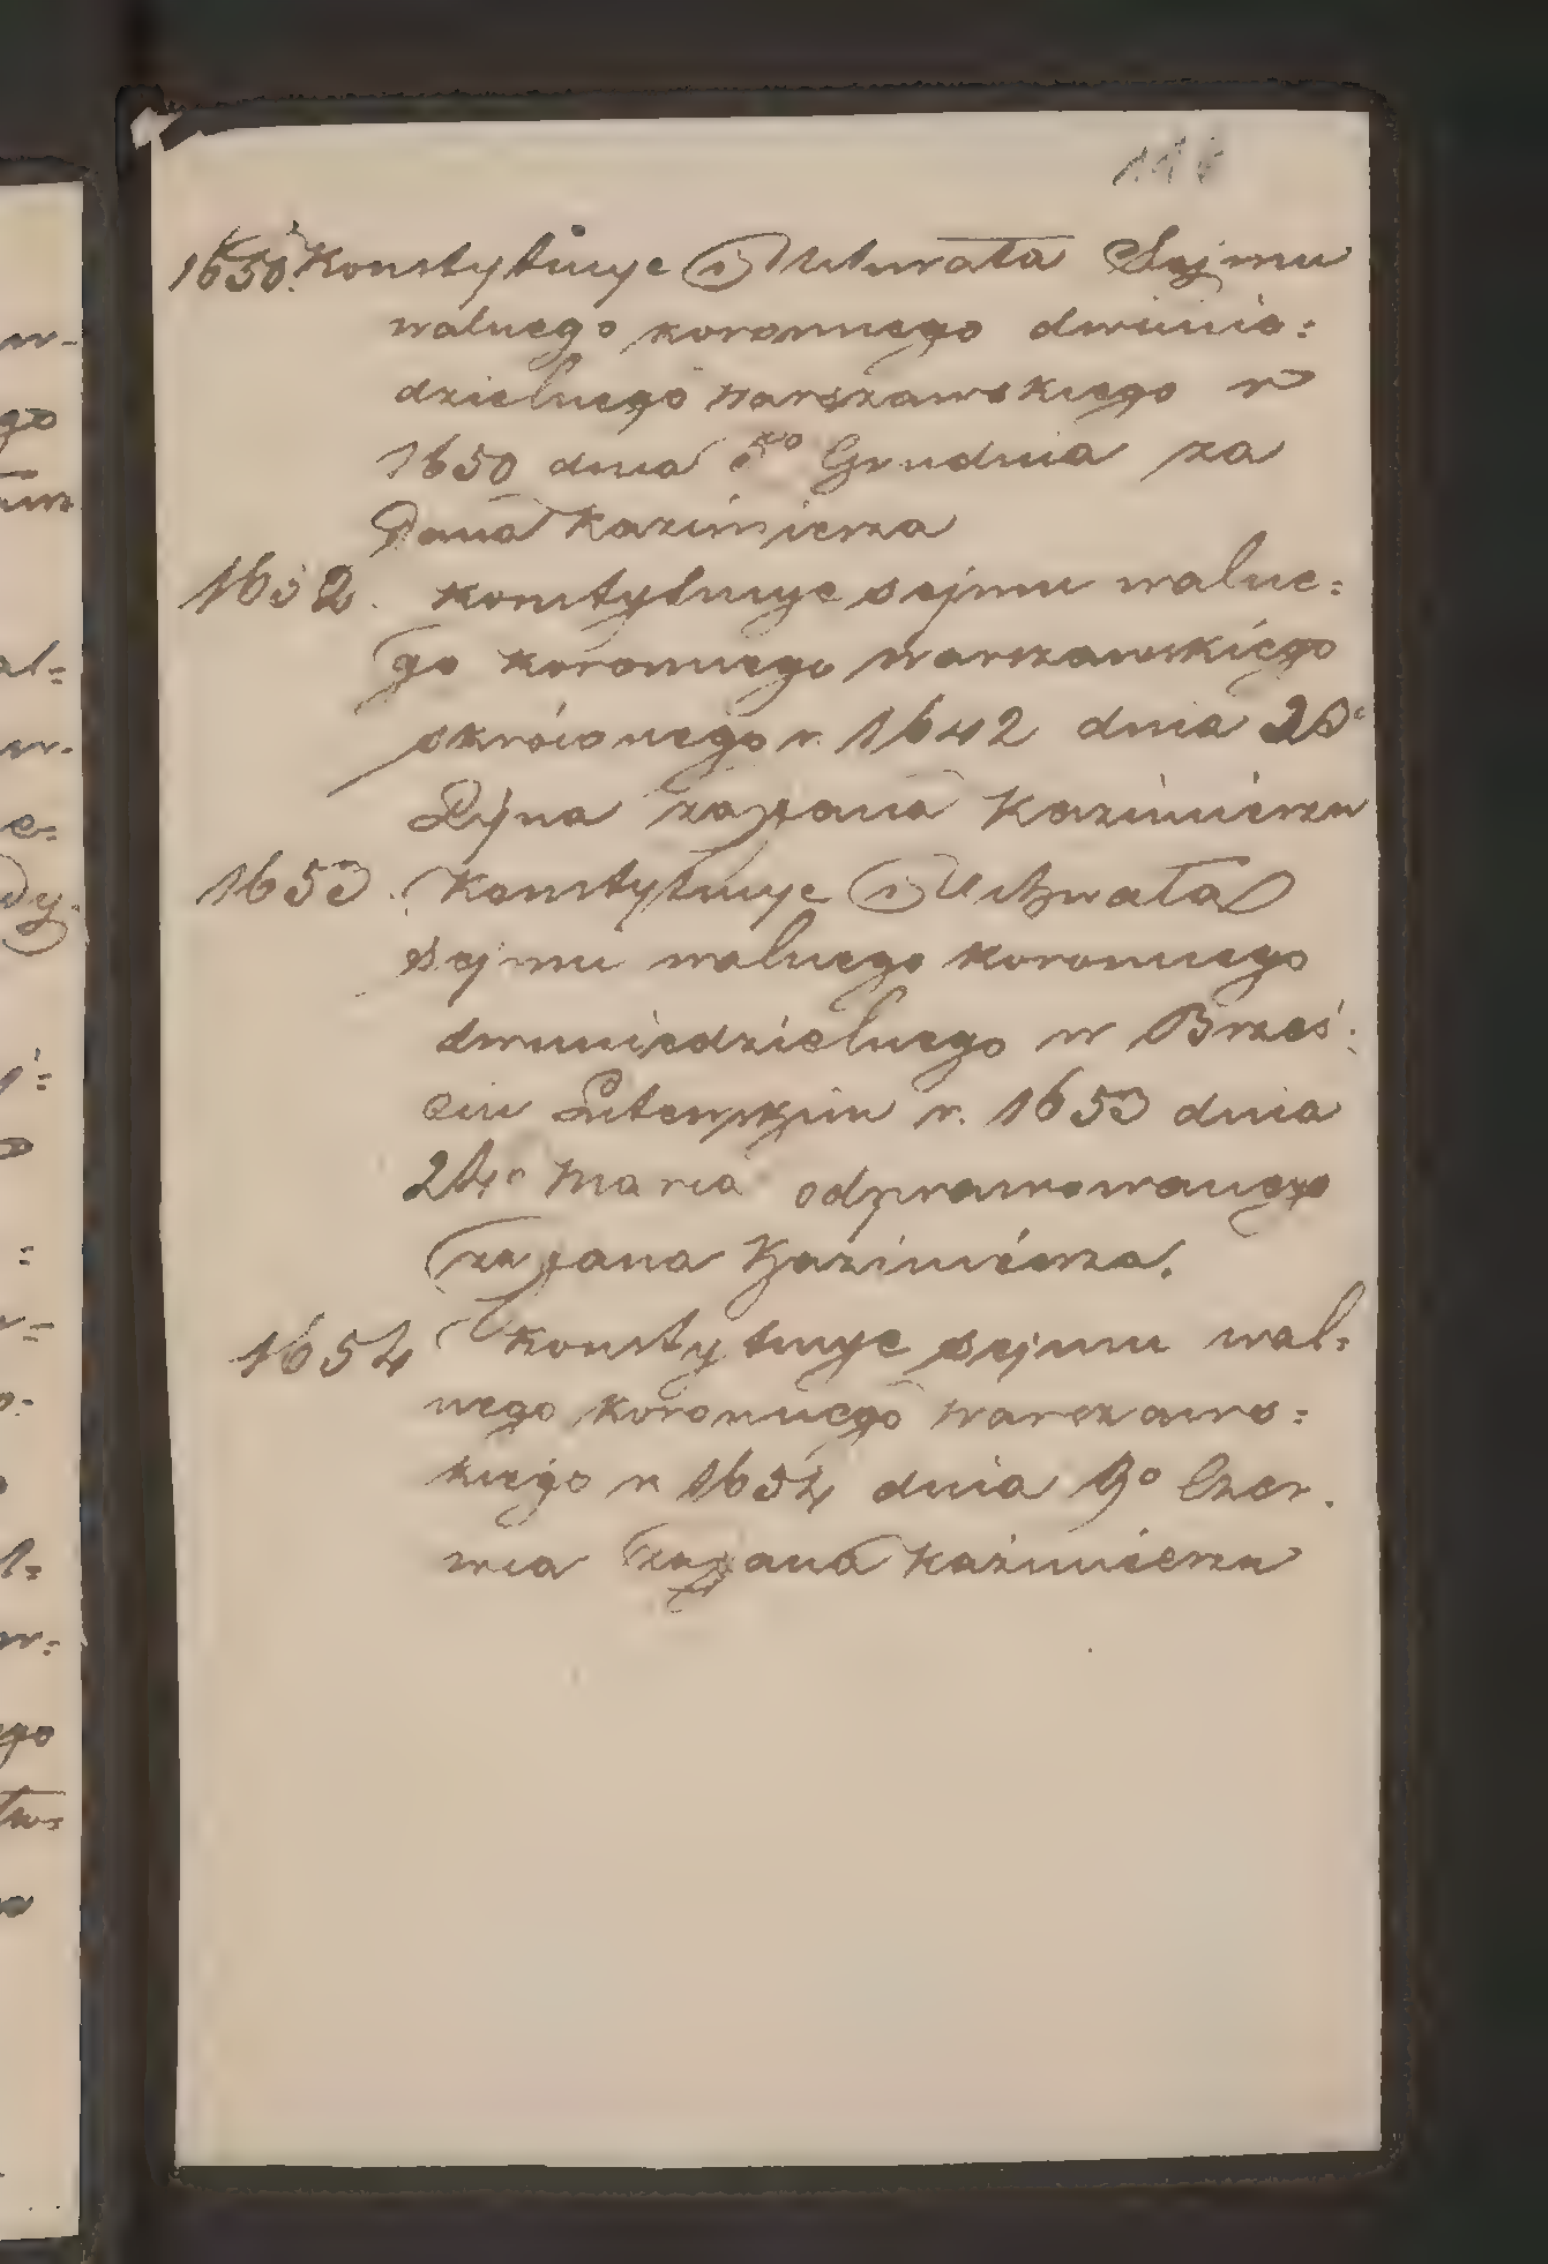 1650. Konstytucye i Uchwała Sejmu
walnego koronnego dwunie=
dzielnego warszawskiego r
1650 dnia 5go Grudnia za
Jana Kazimierza
1652. Konstytucye sejmu walne=
go koronnego warszawskiego
skróconego r. 1642 dnia
za Jana Kazimierza
1653. Konstytucye i Uchwała
sejmu walnego koronnego
dwuniedzielnego w Brześ:
ciu Litewskim r. 1653 dnia
24o Marca odprawowanego
za Jana Kazimierza.
1654 Konstytucye sejmu wal=
nego koronnego warszaws=
kiego r. 1654 dnia 9o Czer.
wca za Jana Kazimierza